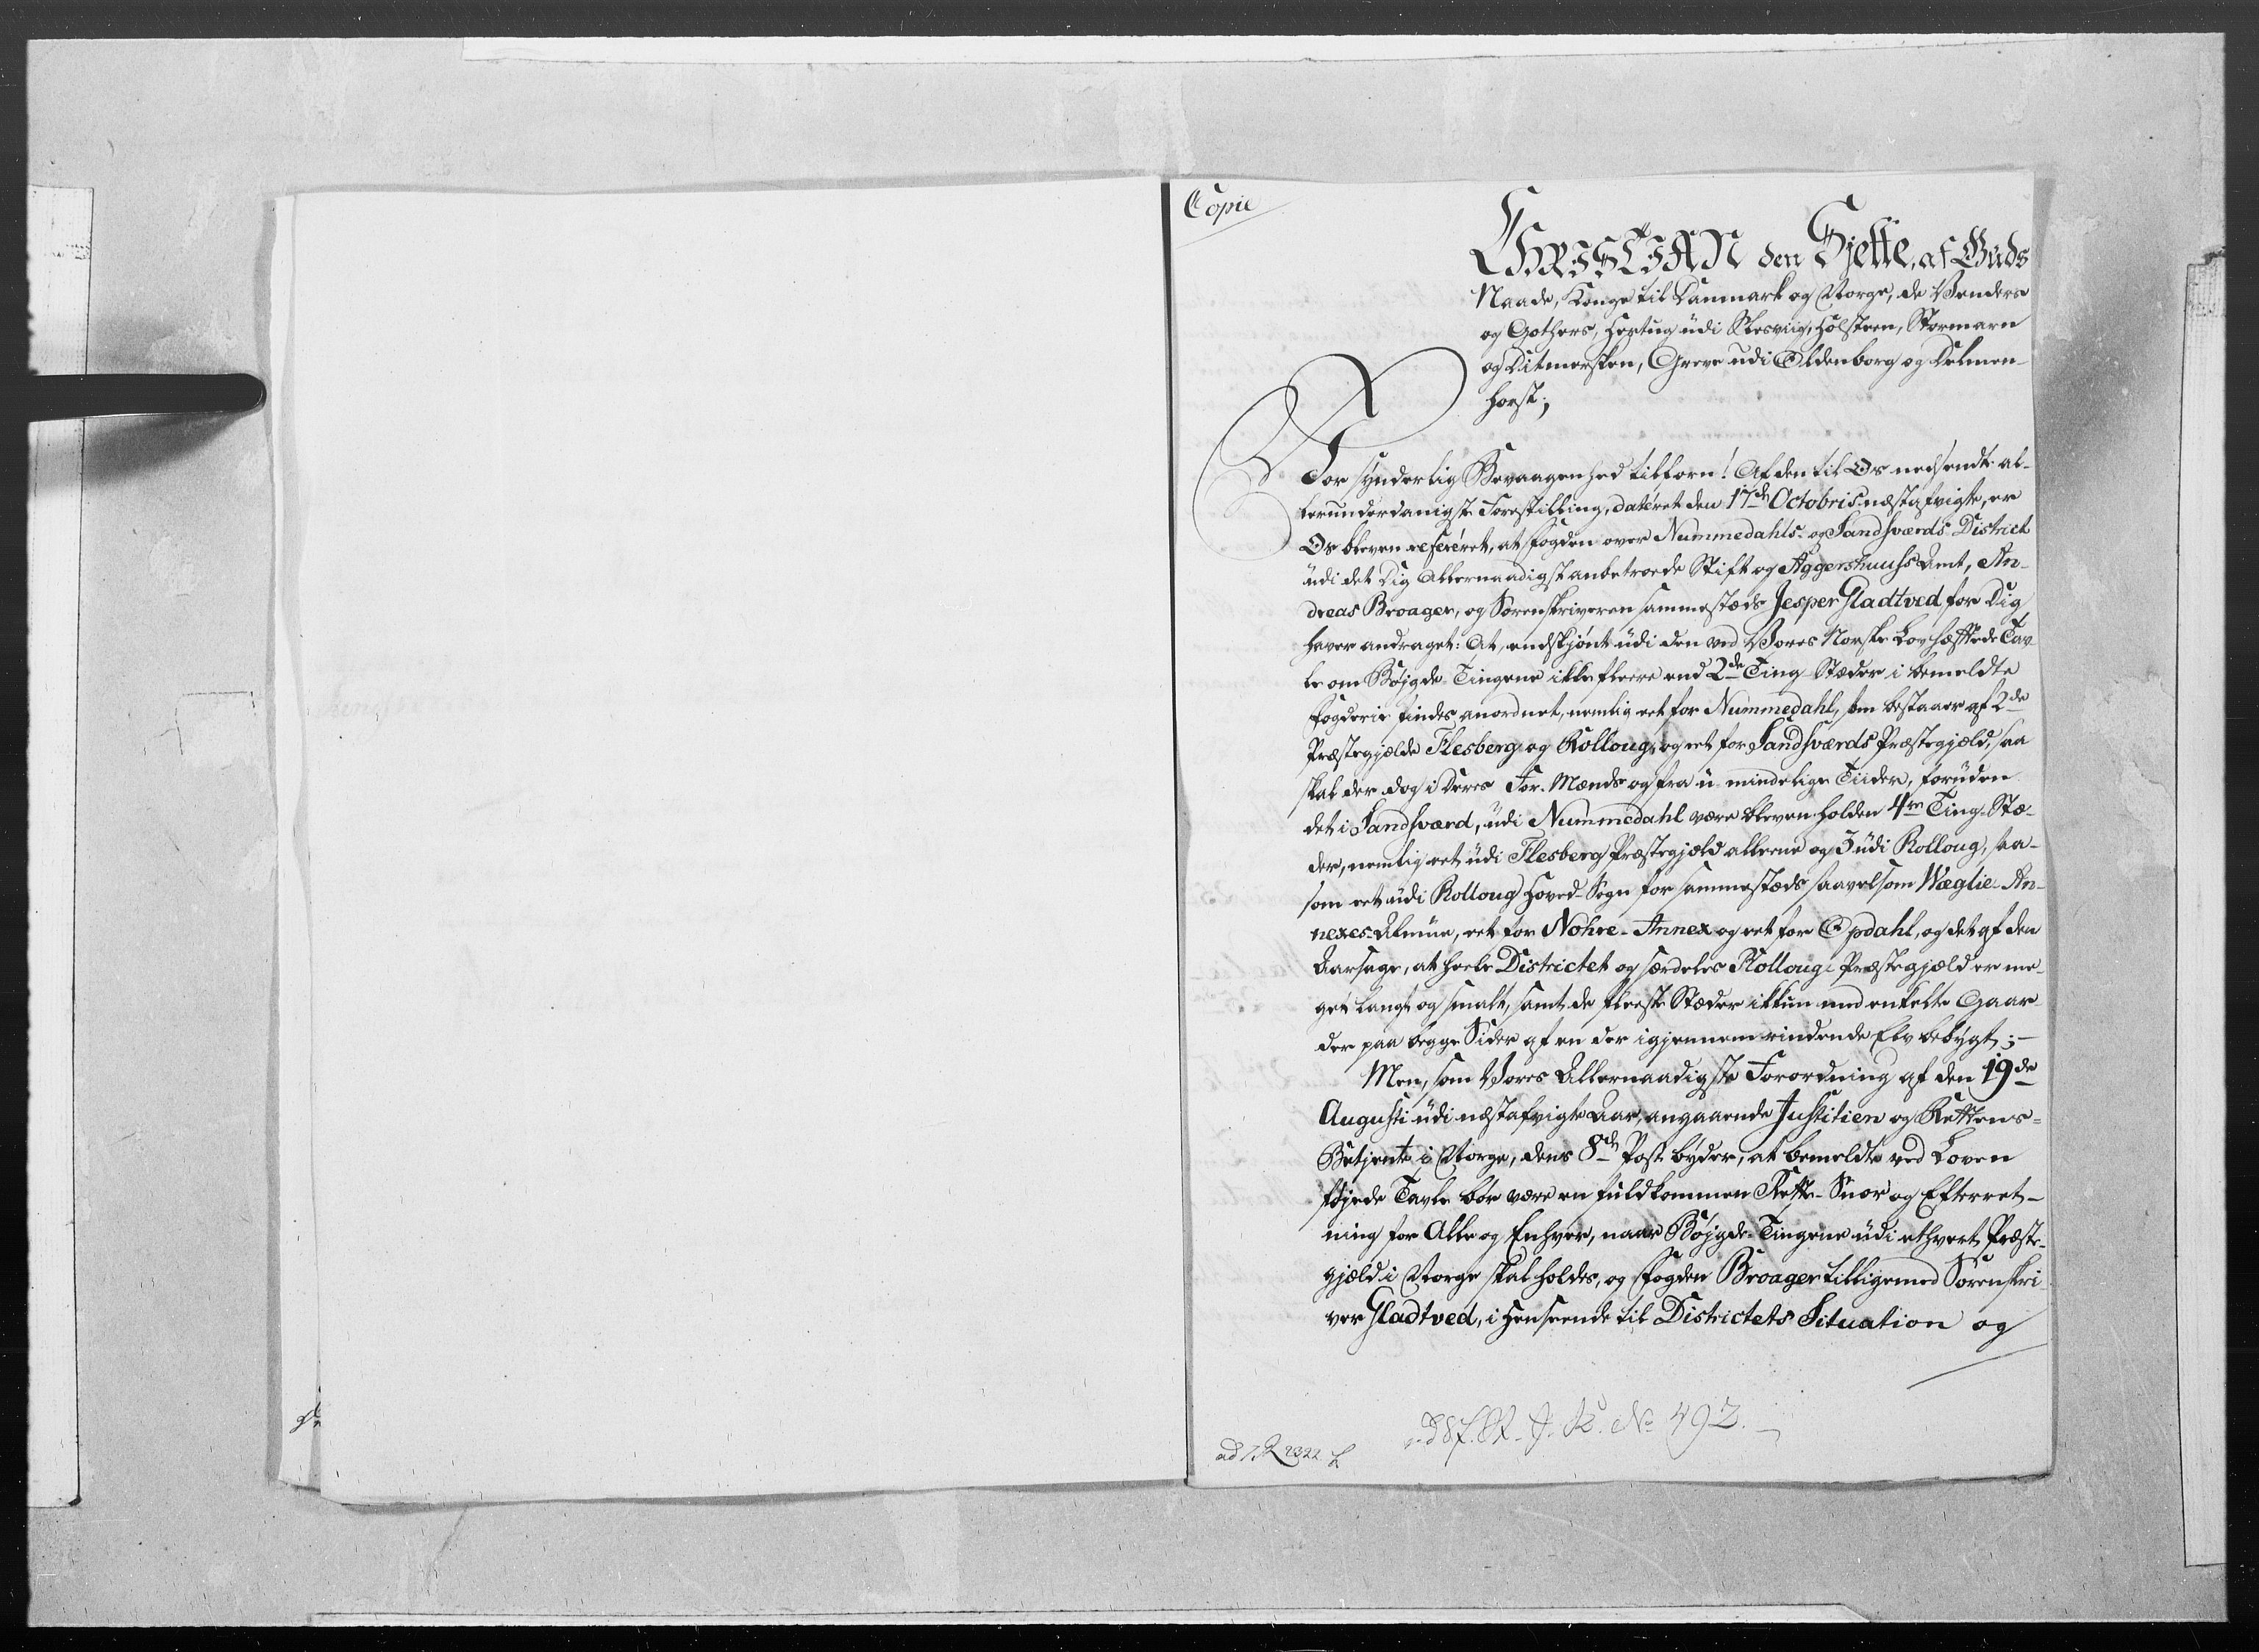 Copie
CHRISTIAN den Sjette, af Guds
Naade, Konge til Danmark og Norge, de Venders
og Gothers, Hertug udi Slesviig, Holsteen, Stormarn
og Ditmersken, Greve udi Oldenborg og Delmen-
horst;
Vor synderlig Bevaagenhed tilforn! Af den til Os nedsendte al-
lerunderdanigste Forestilling, datéret den 17de Octobris næstafvigte, er
Os bleven referéret, at Fogden over Nummedahls- og Sandsværds District
udi det Dig Allernaadigst anbetroede Stift og Aggershuuss Amt, An-
dreas Broager, og Sorenskriveren sammestæds Jesper Gladtved for Dig
haver andraget: At, endskjönt udi den ved Vores Norske Lov hæfftede Tav-
le om Böjgde-Tingene ikke fleere end 2de Ting-Stæder i bemeldte
Fogderie findes anordnet, nemlig eet for Nummedahl, som bestaaer af 2de
Præstegjælde Flesberg og Rolloug, og eet for Sandsværds Præstegjæld, saa
skal der dog i deres For-Mænds og fra u-mindelige Tiider, foruden
det i Sandsværd, udi Nummedahl være bleven holden 4re Ting-Stæ-
der, nemlig eet udi Flesberg Præstegjæld alleene og 3 udi Rolloug, saa-
som eet udi Rolloug Hoved-Sogn for sammestæds saavelsom Wæglie-An-
nexes-Almue, eet for Nohre-Annex og eet for Opdahl, og det af den
Aarsage, at heele Districtet og særdeles Rollougs Præstegjæld er me-
get langt og smalt, samt de fleeste Stæder ikkun med enkelte Gaar-
der paa begge Sider af en der igjennem rindende Elv bebygt;-
Men, som Vores Allernaadigste Forordning af den 19de
Augusti udi næstafvigte Aar, angaaende Justitien og Rettens-
Betjente i Norge, dens 8de Post byder, at bemeldte ved Loven
föjede Tavle bör være en fuldkommen Rette-Snor og Efterret-
ning for Alle og Enhver, naar Böjgde-Tingene udi ethvert Præste-
gjæld i Norge skal holdes, og Fogden Broager tilligemed Sorenskri-
ver Gladtved, i Henseende til Districtets Situation og
No 492.
ad 2322